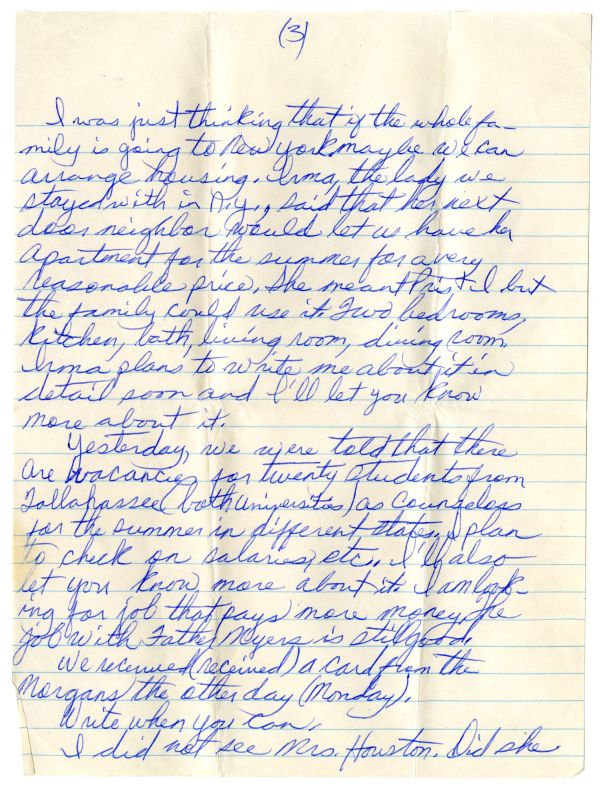 (3)
I was just thinking that if the whole fa-
mily is going to New York maybe we can
arrange housing. Irma, the lady we
stayed with in N.y., said that her next
door neighbor would let us have her
apartment for the summer for a very
reasonable price. She meant Pris & I but
the family could use it. Two bedrooms,
kitchen, bath, living room, dining room.
Irma plans to write me about it in
detail soon and I'll let you know
more about it.
Yesterday, we were told that there
are vacancies for twenty students from
Tallahassee (both universities) as counselors
for the summer in different states. I plan
to check on salaries, etc.. I'll also
let you know more about it. I am look-
ing for job that pays more money. The
job with Father Myers is still good.
We received (received) a card from the
Morgans the other day (Monday).
Write when you can.
I did not see Mrs. Houston. Did she